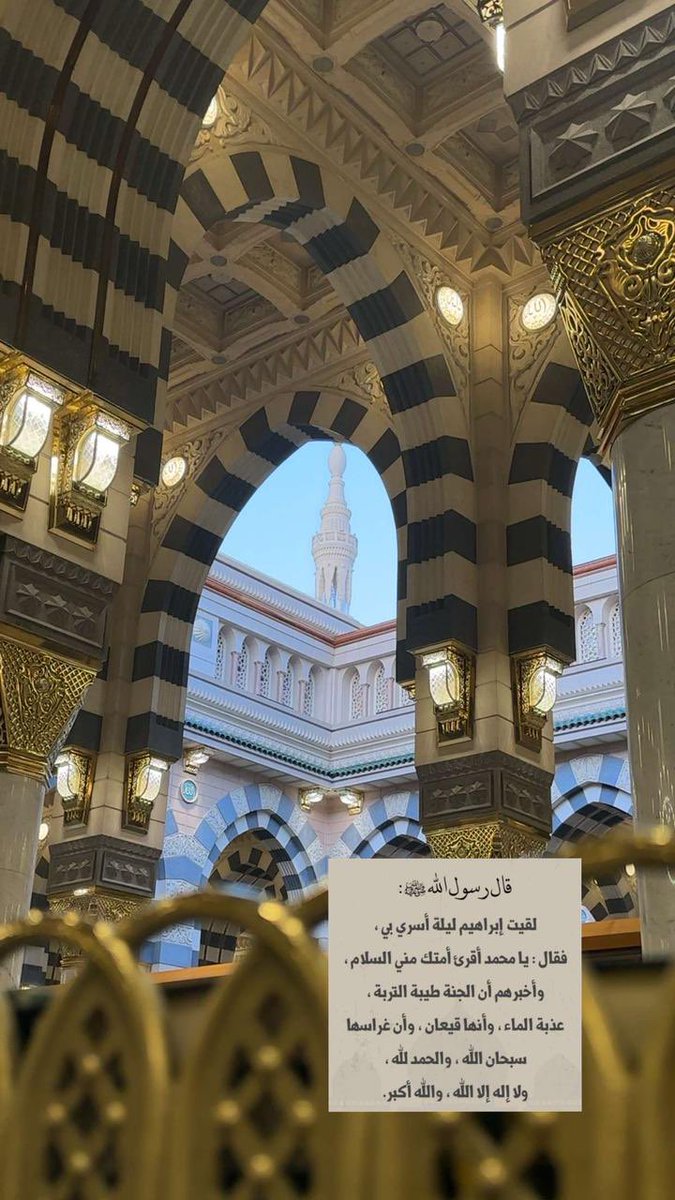 قال رسول الله ﷺ :
لقيت إبراهيم ليلة أسري بي ،
فقال : يا محمد أقرئ أمتك مني السلام ،
وأخبرهم أن الجنة طيبة التربة ،
عذبة الماء ، وأنها قيعان ، وأن غراسها
سبحان الله ، والحمد لله ،
ولا إله إلا الله ، والله أكبر.